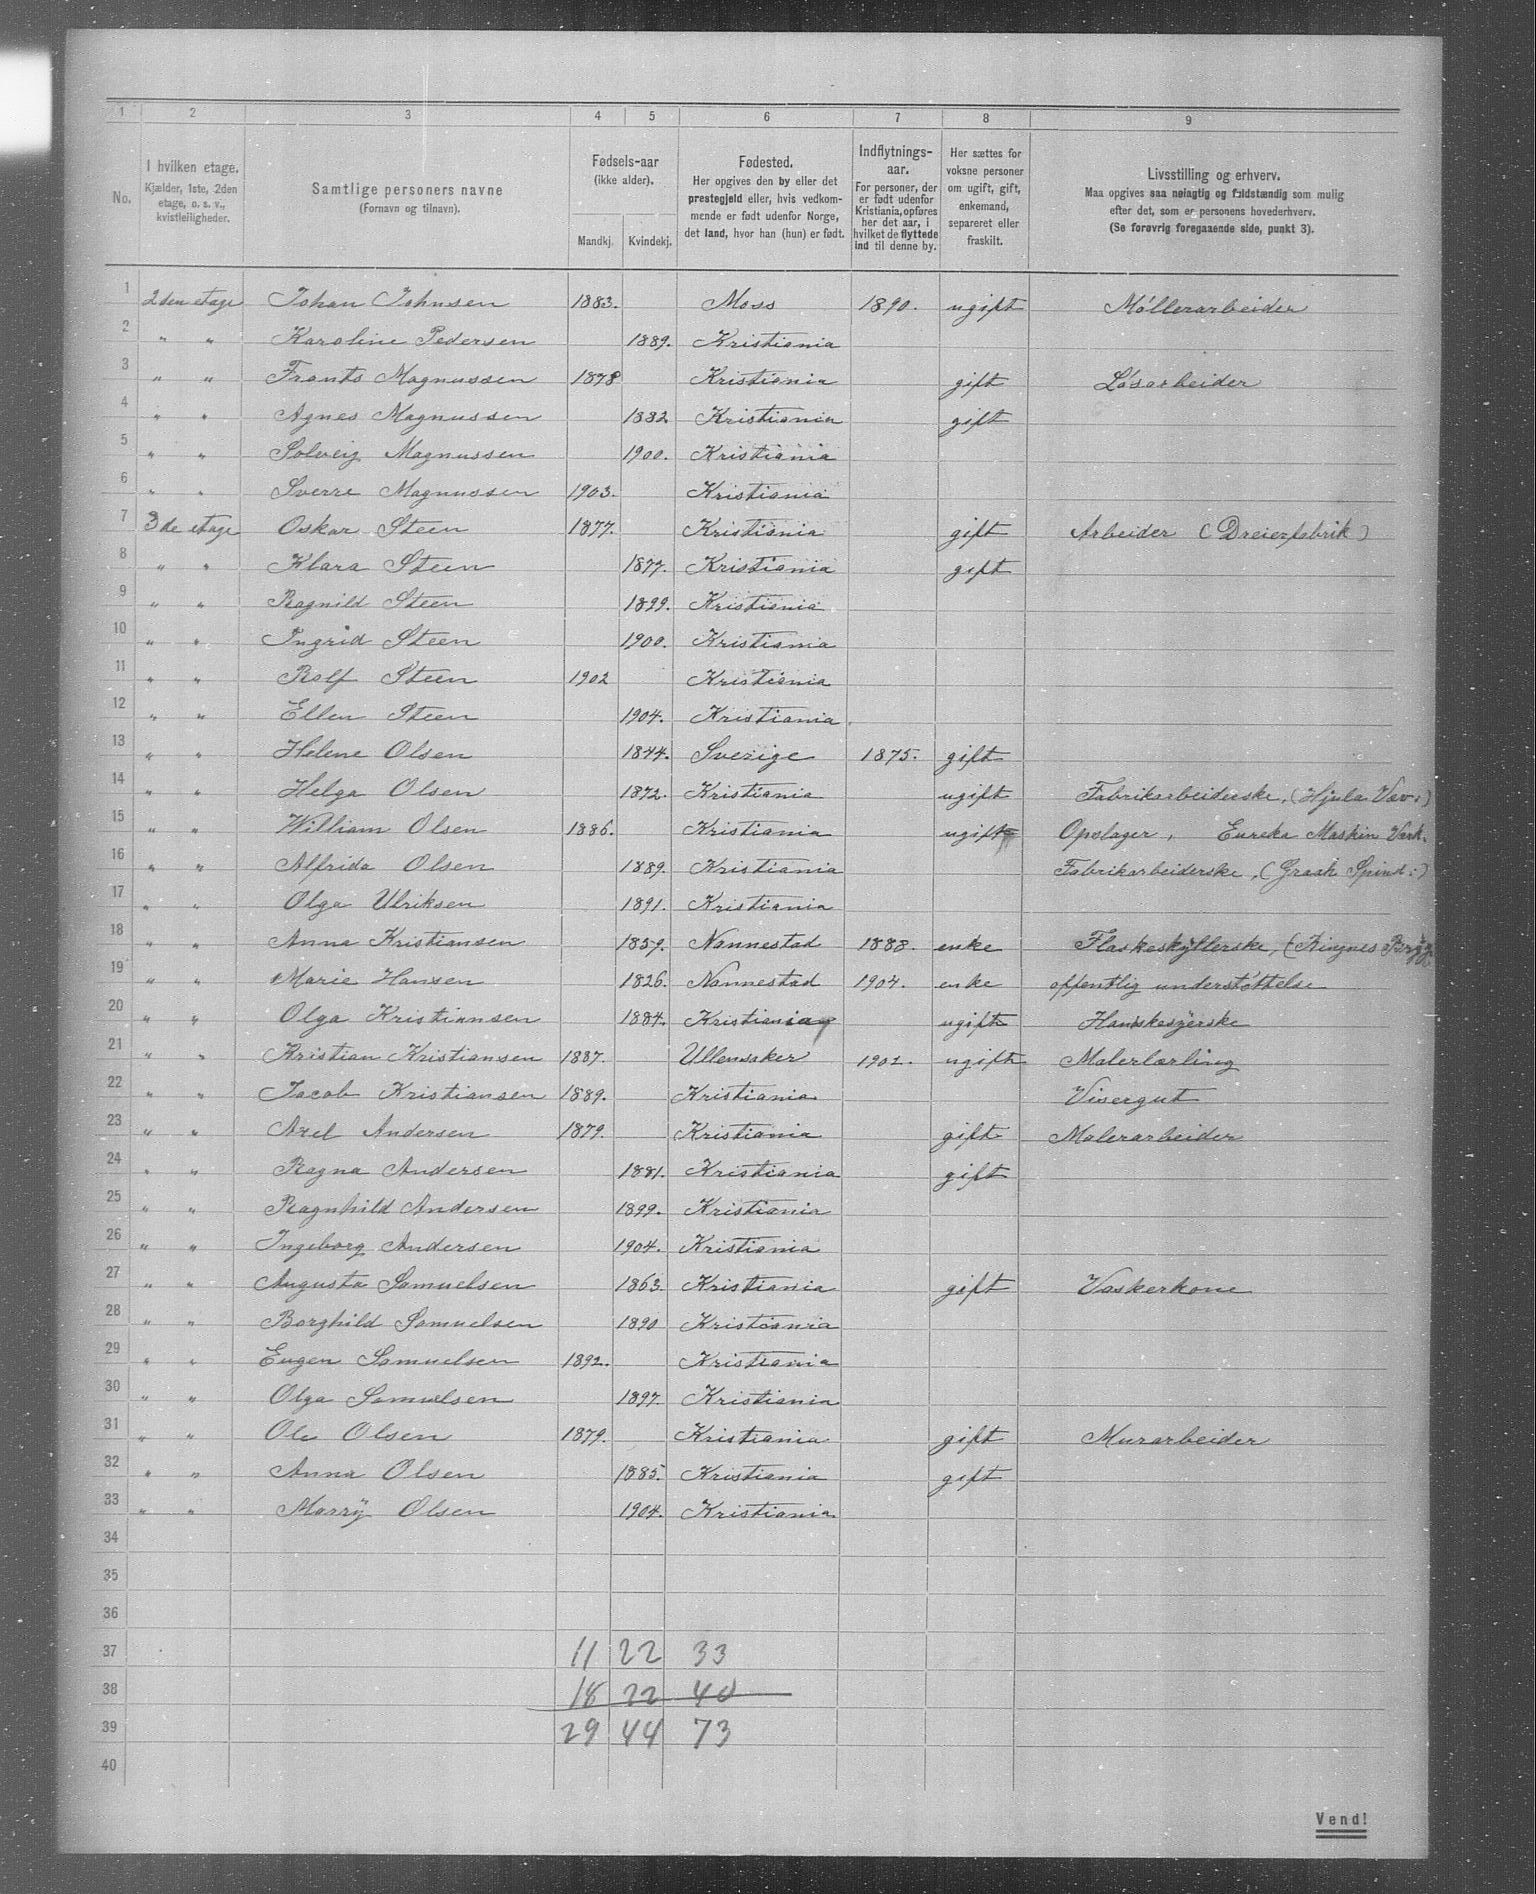 1 2 3 4 5 6 7 8 9
No. I hvilken etage. Kjælder, 1ste, 2den etage, o. s. v., kvistleiligheder. Samtlige personers navne (Fornavn og tilnavn). Fødsels-aar (ikke alder). Mandkj. Kvindekj. Fødested. Her opgives den by eller det prestegjeld eller, hvis vedkommende er født udenfor Norge, det land, hvor han (hun) er født. Indflytnings-aar. For personer, der er født udenfor Kristiania, opføres her det aar, i hvilket de flyttede ind til denne by. Her sættes for voksne personer om ugift, gift, enkemand, separeret eller fraskilt. Livsstilling og erhverv. Maa opgives saa nøiagtig og fuldstændig som mulig efter det, som er personens hovederhverv. (Se forøvrig foregaaende side, punkt 3).
1 2den etage Johan Johnsen 1883. Moss 1890. ugift Møllerarbeider
2 " " Karoline Pedersen 1889. Kristiania
3 " " Frants Magnussen 1878 Kristiania gift Løsarbeider
4 " " Agnes Magnussen 1882 Kristiania gift
5 " " Solveig Magnussen 1900. Kristiania
6 " " Sverre Magnussen 1903. Kristiania
7 3de etage Oskar Steen 1877. Kristiania gift Arbeider (Dreierfabrik)
8 " " Klara Steen 1877. Kristiania gift
9 " " Ragnild Steen 1899. Kristiania
10 " " Ingrid Steen 1900. Kristiania
11 " " Rolf Steen 1902 Kristiania
12 " " Ellen Steen 1904. Kristiania
13 " " Helene Olsen 1844. Sverige 1875. gift
14 " " Helga Olsen 1872. Kristiania ugift Fabrikarbeiderske, (Hjula Væv:)
15 " " William Olsen 1886. Kristiania ugift Opslager, Eureka Maskin Værk.
16 " " Alfrida Olsen 1889. Kristiania Fabrikarbeiderske, (Graah Spind:)
17 " " Olga Ulriksen 1891. Kristiania
18 " " Anna Kristiansen 1859. Nannestad 1888. enke Flaskeskyllerske, (Ringnes Brygg
19 " " Marie Hansen 1826. Nannestad 1904. enke offentlig understøttelse
20 " " Olga Kristiansen 1884. Kristiania ugift Hanskesyerske
21 " " Kristian Kristiansen 1887. Ullensaker 1902. ugift Malerlærling
22 " " Jacob Kristiansen 1889. Kristiania Visergut
23 " " Axel Andersen 1879. Kristiania gift Malerarbeider
24 " " Ragna Andersen 1881. Kristiania gift
25 " " Ragnhild Andersen 1899. Kristiania
26 " " Ingeborg Andersen 1904. Kristiania
27 " " Augusta Samuelsen 1863. Kristiania gift Vaskerkone
28 " " Borghild Samuelsen 1890 Kristiania
29 " " Eugen Samuelsen 1892. Kristiania
30 " " Olga Samuelsen 1897. Kristiania
31 " " Ole Olsen 1879. Kristiania gift Murarbeider
32 " " Anna Olsen 1885. Kristiania gift
33 " " Marry Olsen 1904. Kristiania
34
35
36
37 11 22 33
38 18 22 40
39 29 44 73
40
Vend!